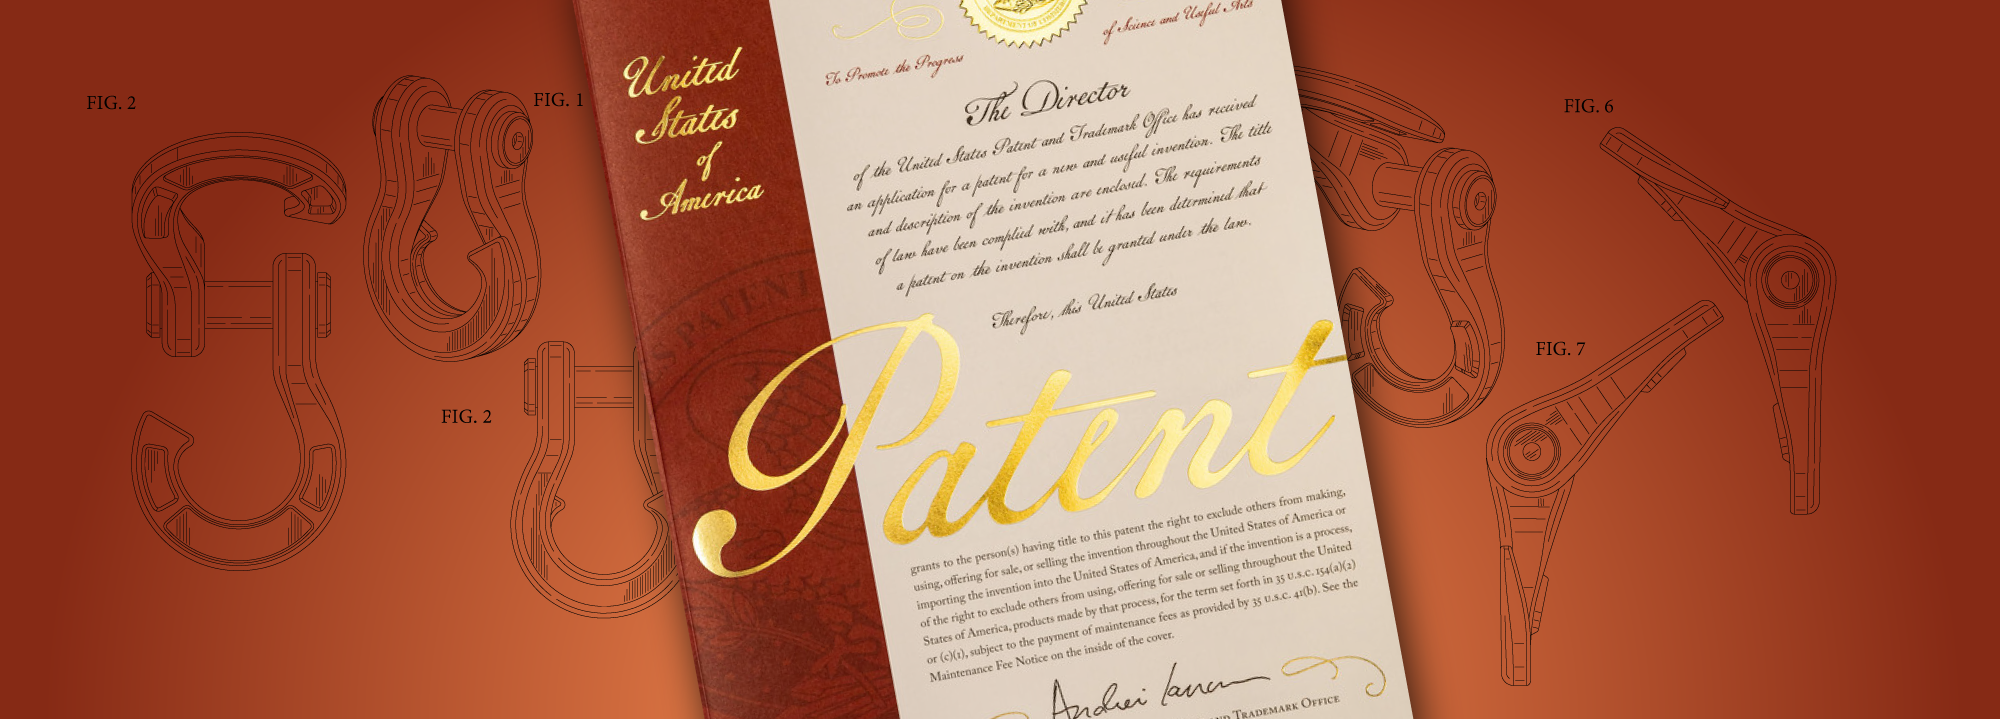 FIG. 2
FIG. 1
FIG. 2
United
States
of
America
DEPARTMENT OF COMMERCE
To Promote the Progress
of Science and Useful Arts
The Director
of the United States Patent and Trademark Office has received
an application for a patent for a new and useful invention. The title
and description of the invention are enclosed. The requirements
of law have been complied with, and it has been determined that
a patent on the invention shall be granted under the law.
Therefore, this United States
Patent
grants to the person(s) having title to this patent the right to exclude others from making,
using, offering for sale, or selling the invention throughout the United States of America or
importing the invention into the United States of America, and if the invention is a process,
of the right to exclude others from using, offering for sale or selling throughout the United
States of America, products made by that process, for the term set forth in 35 U.S.C. 154(a)(2)
or (c)(1), subject to the payment of maintenance fees as provided by 35 U.S.C. 41(b). See the
Maintenance Fee Notice on the inside of the cover.
Andrei Iancu
TRADEMARK OFFICE
FIG. 6
FIG. 7